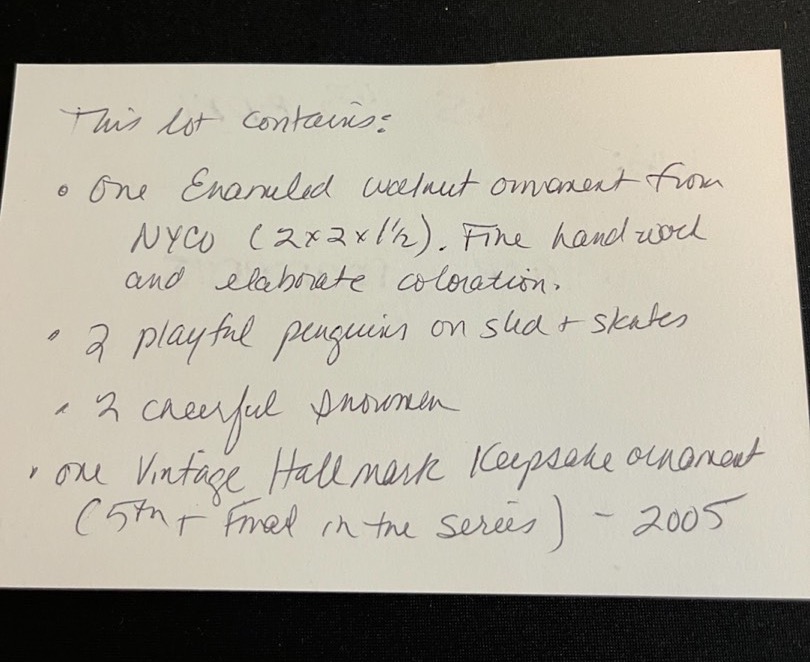 This lot contains:
• One Enameled walnut ornament from
NYCO (2x2x1½). Fine hand work
and elaborate coloration.
• 2 playful penguins on sled + skates
• 2 cheerful snowmen
• one Vintage Hallmark Keepsake ornament
(5th + Final in the series) - 2005